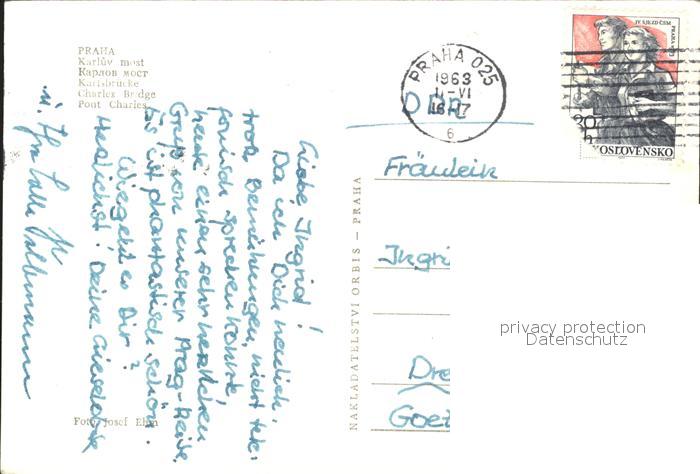 PRAHA
Karlův most
Карлов мост
Karlsbrücke
Charles Bridge
Pont Charles
Liebe Ingrid!
Da ich Dich neulich,
trotz Bemühungen, nicht tele-
fonisch sprechen konnte,
heute einen sehr herzlichen
Gruß von unserer Prag-Reise.
Es ist phantastisch schön.
Wie geht es Dir?
Herzlichst! Deine
u.
Foto Josef Ehm
NAKLADATELSTVÍ ORBIS – PRAHA
PRAHA 025
1963
11-VI
16-17
6
IV. SJEZD ČSM
PRAHA 1963
30
h
KOSLOVENSKO
DDR
Fräulein
Ingri
Dre
Goet
privacy protection
Datenschutz